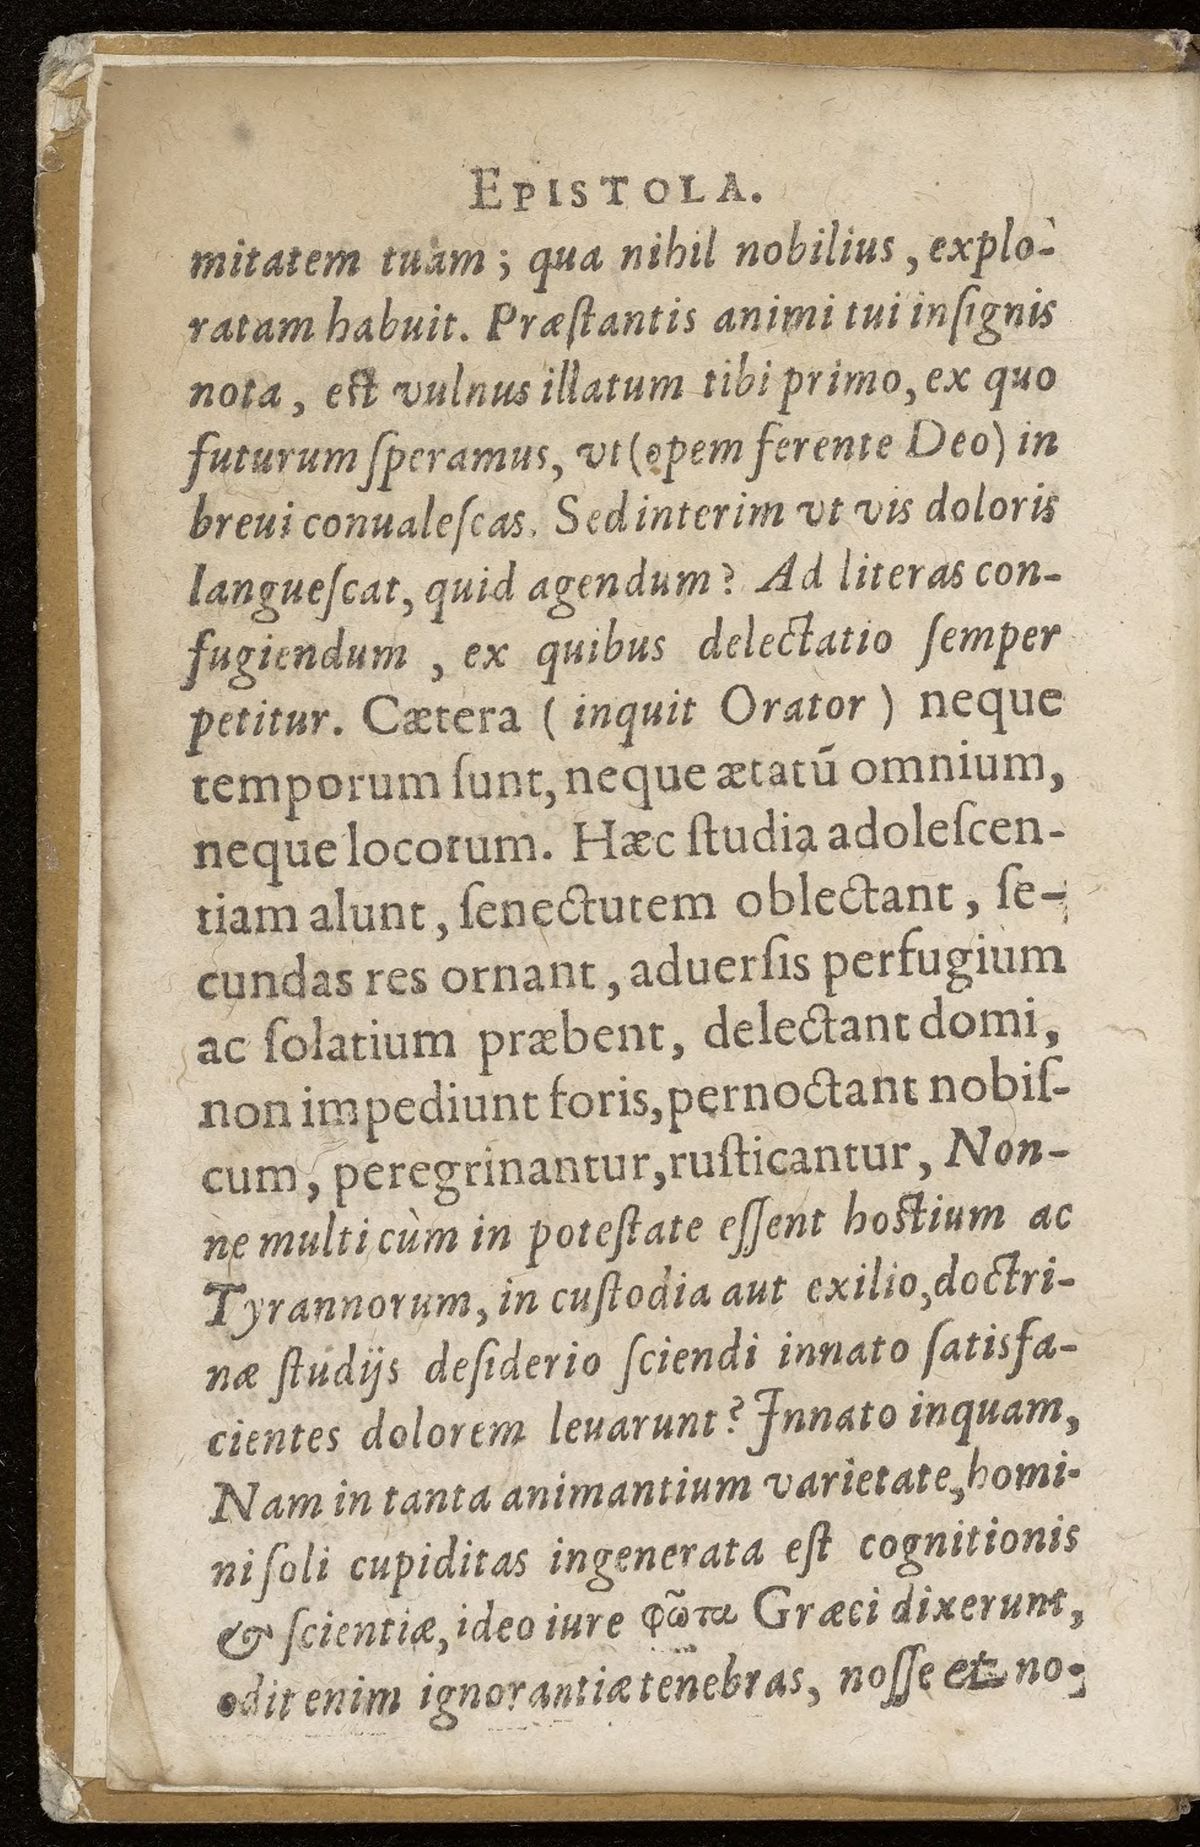 EPISTOLA.
mitatem tuam ; qua nihil nobilius , explo-
ratam habuit. Præſtantis animi tui inſignis
nota , eſt vulnus illatum tibi primo, ex quo
futurum ſperamus, vt (opem ferente Deo) in
breui conualeſcas. Sed interim vt vis doloris
langueſcat, quid agendum? Ad literas con-
fugiendum , ex quibus delectatio ſemper
petitur. Cætera ( inquit Orator ) neque
temporum ſunt, neque ætatū omnium,
neque locorum. Hæc ſtudia adoleſcen-
tiam alunt, ſenectutem oblectant, ſe-
cundas res ornant, aduerſis perfugium
ac ſolatium præbent, delectant domi,
non impediunt foris, pernoctant nobiſ-
cum, peregrinantur, ruſticantur, Non-
ne multi cùm in poteſtate eſſent hoſtium ac
Tyrannorum, in cuſtodia aut exilio, doctri-
næ ſtudijs deſiderio ſciendi innato ſatisfa-
cientes dolorem leuarunt? Innato inquam,
Nam in tanta animantium varietate, homi-
ni ſoli cupiditas ingenerata eſt cognitionis
& ſcientiæ, ideo iure φῶτα Græci dixerunt,
odit enim ignorantiæ tenebras, noſſe et no-